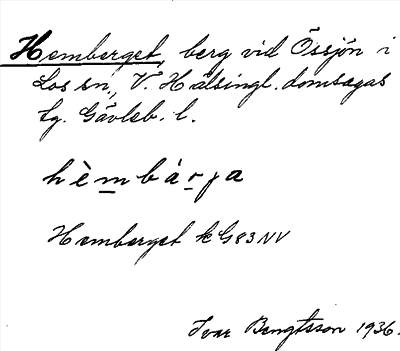 Hemberget, berg vid Össjön i
Los sn, V. Hälsingl. domsagas
tg. Gävleb. l.
hèmbárja
Hemberget k G83NV
Ivar Bengtsson 1936.